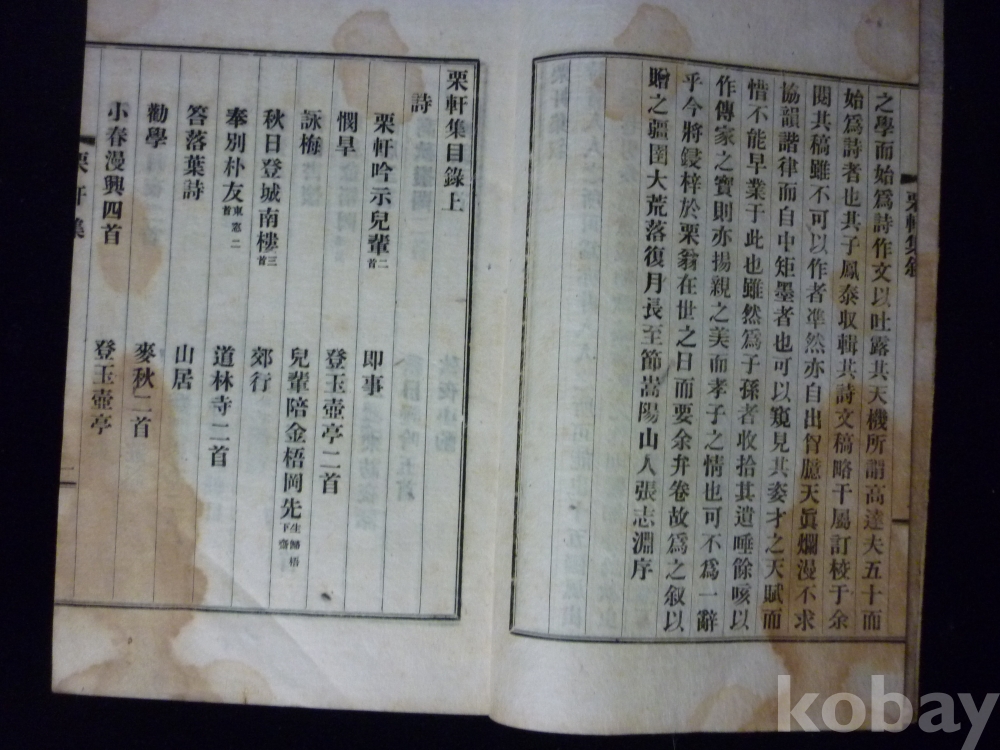 之學而始爲詩作文以吐露其天機所謂高達夫五十而
始爲詩者也其子鳳泰取輯其詩文稿略干屬訂校于余
閱其稿雖不可以作者凖然亦自出智臆天眞爛漫不求
協韻諧律而自中矩墨者也可以窺見其姿才之天賦而
惜不能早業于此也雖然爲子孫者收拾其遺唾餘咳以
作傳家之寶則亦揚親之美而孝子之情也可不爲一辭
乎今將鋟梓於栗翁在世之日而要余弁卷故爲之叙以
贈之疆圉大荒落復月長至節嵩陽山人張志淵序
栗軒集叙
栗軒集目錄上
詩
栗軒吟示兒輩二首 即事
憫旱 登玉壺亭二首
詠梅 兒輩陪金梧岡先生歸梧下齋
秋日登城南樓三首 郊行
奉別朴友東窓二首 道林寺二首
答落葉詩 山居
勸學 麥秋二首
小春漫興四首 登玉壺亭
栗軒集
一
kobay